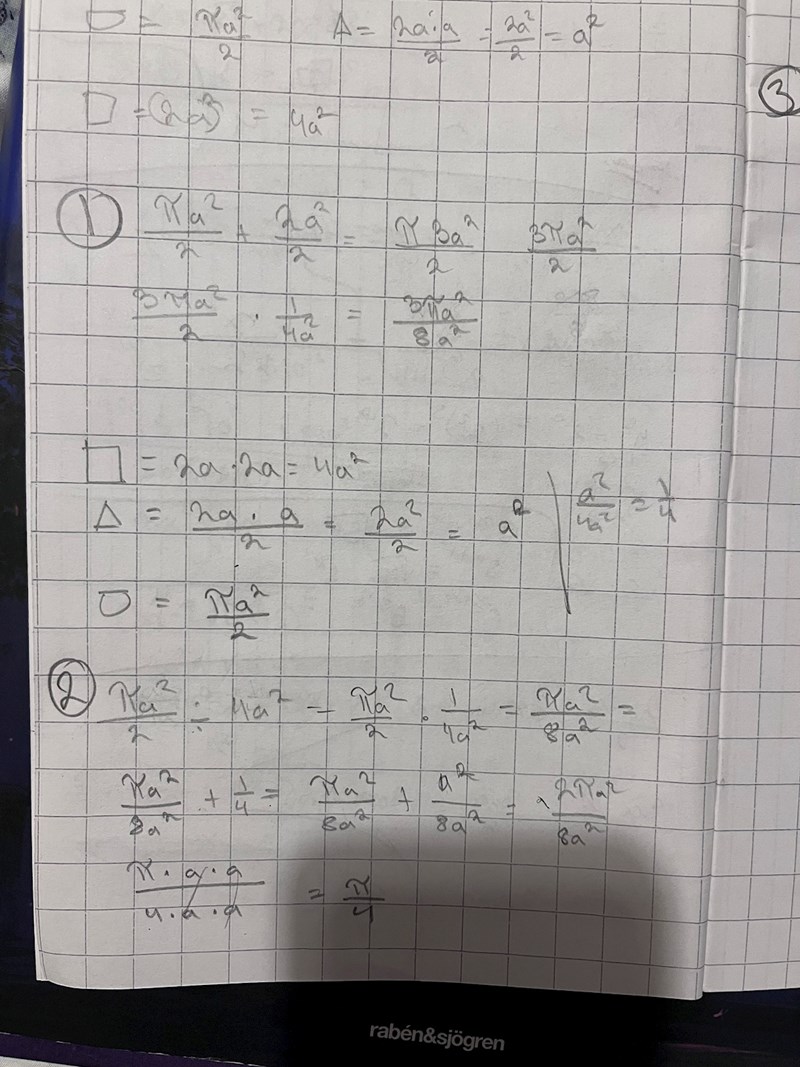 ▽ = πa²/2 Δ = 2a·a/2 = 2a²/2 = a²
③
□ = (2a)² = 4a²
① πa²/2 + 2a²/2 = π 3a²/2 3πa²/2
3πa²/2 · 1/4a² = 3πa²/8a²
□ = 2a·2a = 4a²
Δ = 2a·a/2 = 2a²/2 = a² / a²/4a² = 1/4
▽ = πa²/2
② πa²/2 ÷ 4a² = πa²/2 · 1/4a² = πa²/8a² =
πa²/8a² + 1/4 = πa²/8a² + a²/8a² = 2πa²/8a²
π·a·a/4·a·a = π/4
rabén&sjögren